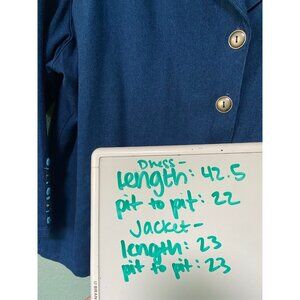 Dress-
length: 42.5
pit to pit: 22
Jacket-
length: 23
pit to pit: 23